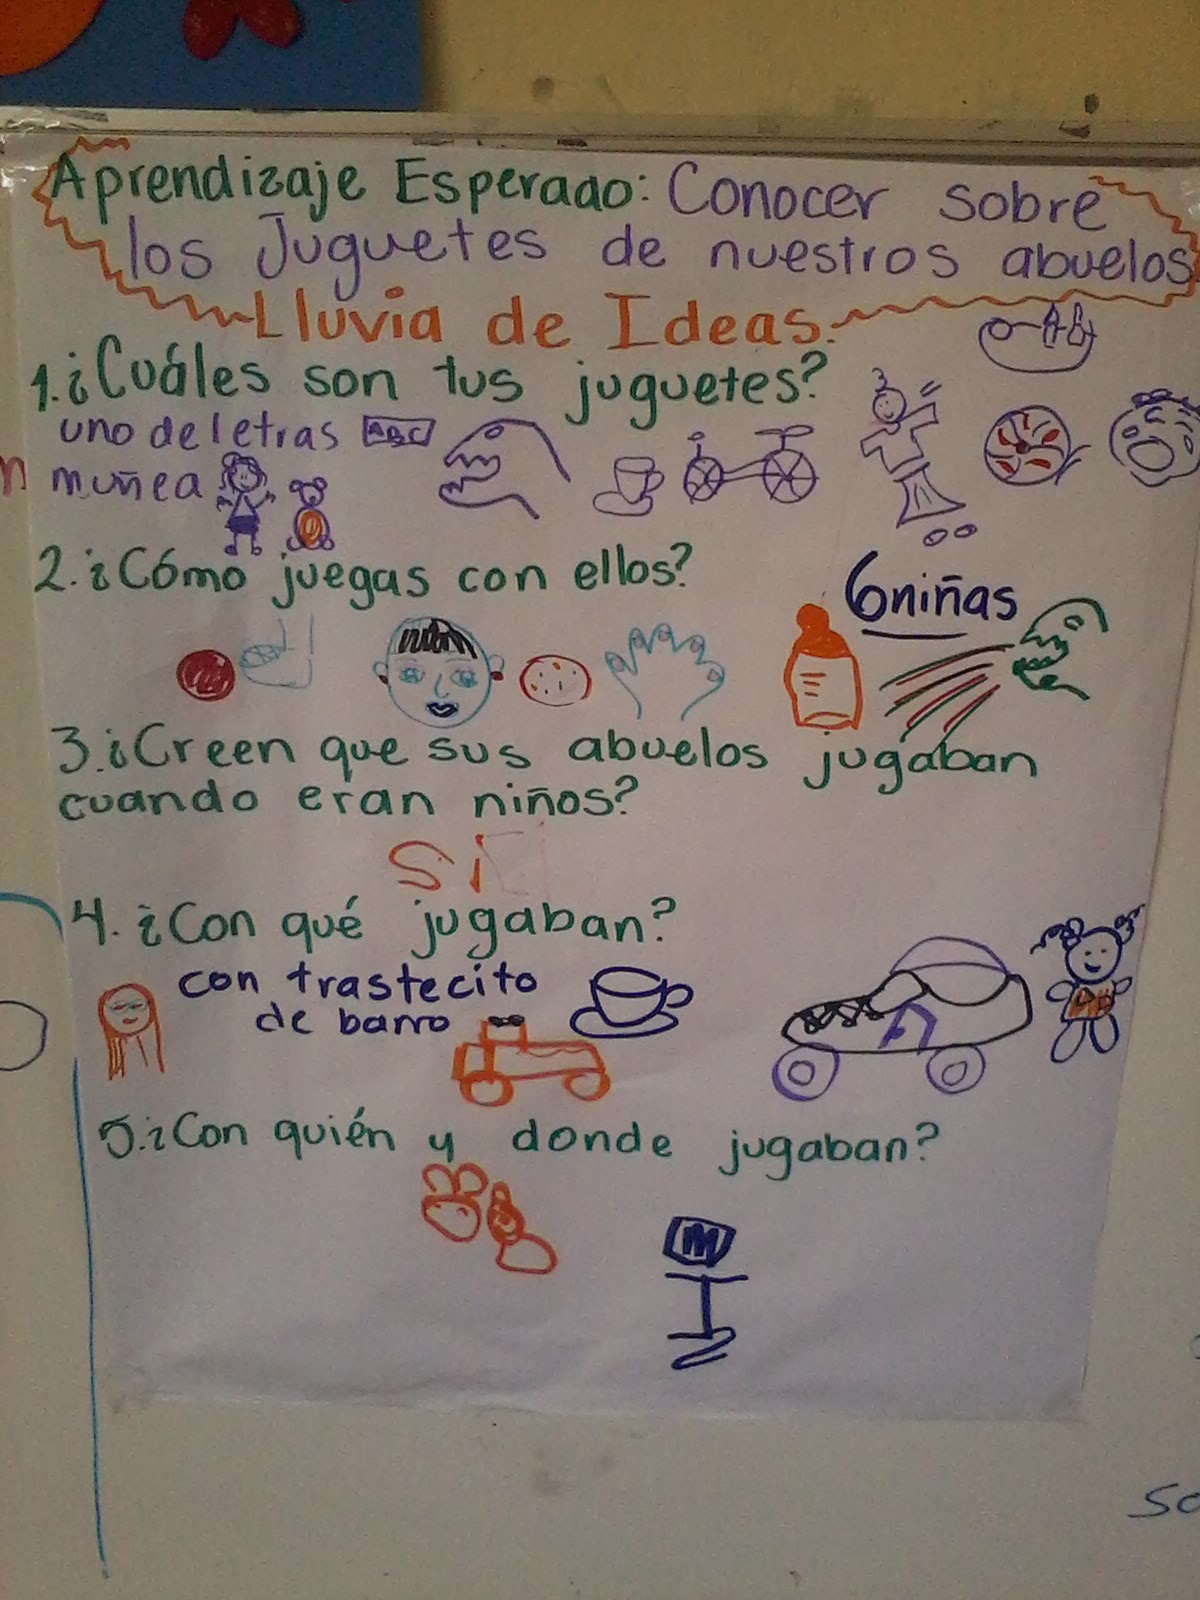 Aprendizaje Esperado: Conocer sobre
los Juguetes de nuestros abuelos
Lluvia de Ideas.
1.¿Cuáles son tus juguetes?
uno de letras ABC
muñea
2.¿Cómo juegas con ellos?
6 niñas
3.¿Creen que sus abuelos jugaban
cuando eran niños?
SI
4.¿Con qué jugaban?
con trastecito
de barro
5.¿Con quién y donde jugaban?
M